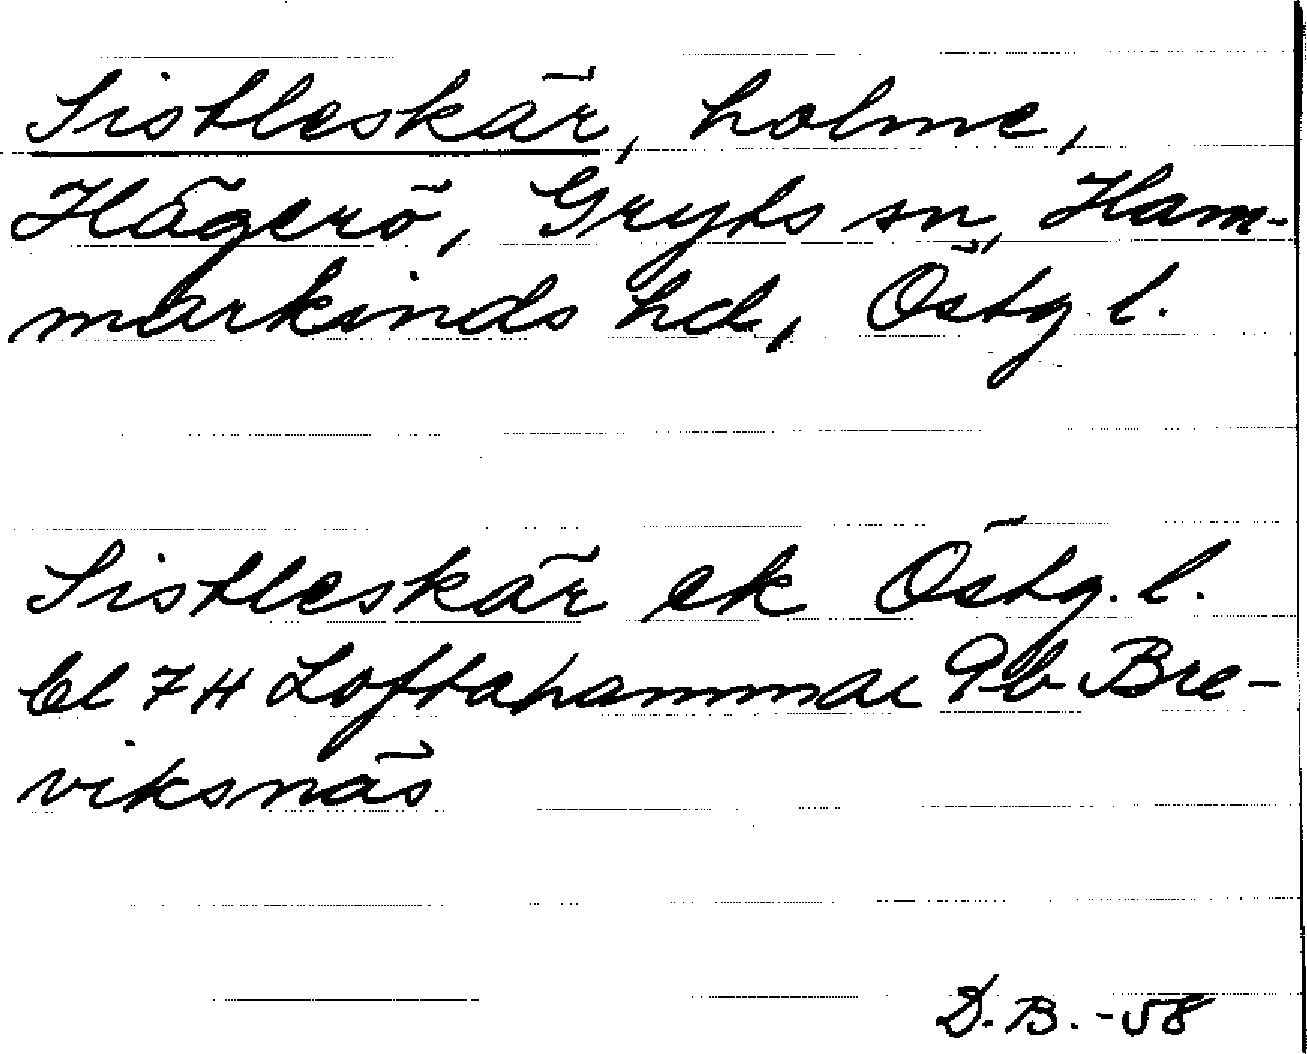 Sistleskär, holme,
Hägerö, Gryts sn, Ham-
markinds hd, Östg. l.
Sistleskär ek Östg. l.
bl 7H Loftahammar 9b Bre-
viksnäs
D.B. -58